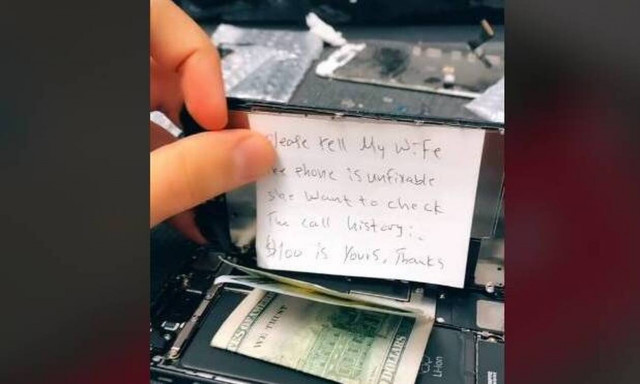 Please tell My Wife
phone is unfixable
she Want to check
The call history.
$100 is Yours, Thanks
TES OF AMERICA
WE TRUST
DOLLARS
Li-ion